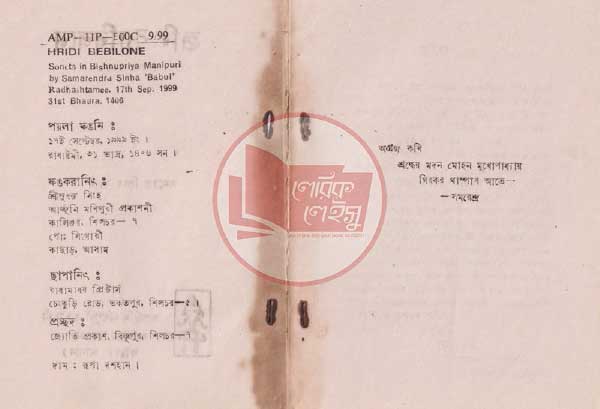 AMP-11P-500C-9.99
HRIDI BEBILONE
Sonets in Bishnupriya Manipuri
by Samarendra Sinha 'Babul'
Radhashtamee, 17th Sep. 1999
31st Bhadra, 1406
পয়লা ফঙনি ঃ
১৭ই সেপ্টেম্বর, ১৯৯৯ ইং ।
রাধাষ্টমী, ৩১ ভাদ্র, ১৪০৬ সন ।
ফঙকরানিৎ ঃ
শ্রীযুক্ত সিংহ
মণিপুরী প্রকাশনী
শিলচর — ৭
পোঃ সিংগারী
কাছাড়, আসাম
ছাপানিৎ ঃ
প্রিন্টার্স
রোড, শিলচর—৫ ।
প্রচ্ছদ ঃ
জ্যোতি প্রকাশ, বিষ্ণুপুর, শিলচর—৭
দাম ঃ রূপা দশহান ।
অগ্রজ কবি
শ্রদ্ধেয় মদন মোহন মুখোপাধ্যায়
থাম্পাৰ আতে—
—সমরেন্দ্র
পৌরিক
পেইসু